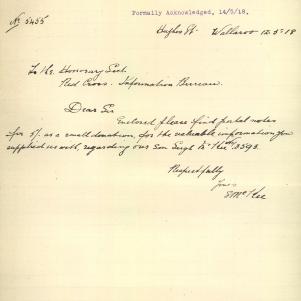 Formally Acknowledged, 14/5/18.
No 5455
Hughes St. Wallaroo 12.5.18
To the Honorary Sect.
Red Cross. Information Bureau.
Dear Sir
Enclosed please find postal notes
for 5/ as a small donation, for the valuable information you
supplied us with, regarding our Son Sergt McKee 3593.
Respectfully
Yours
S McKee